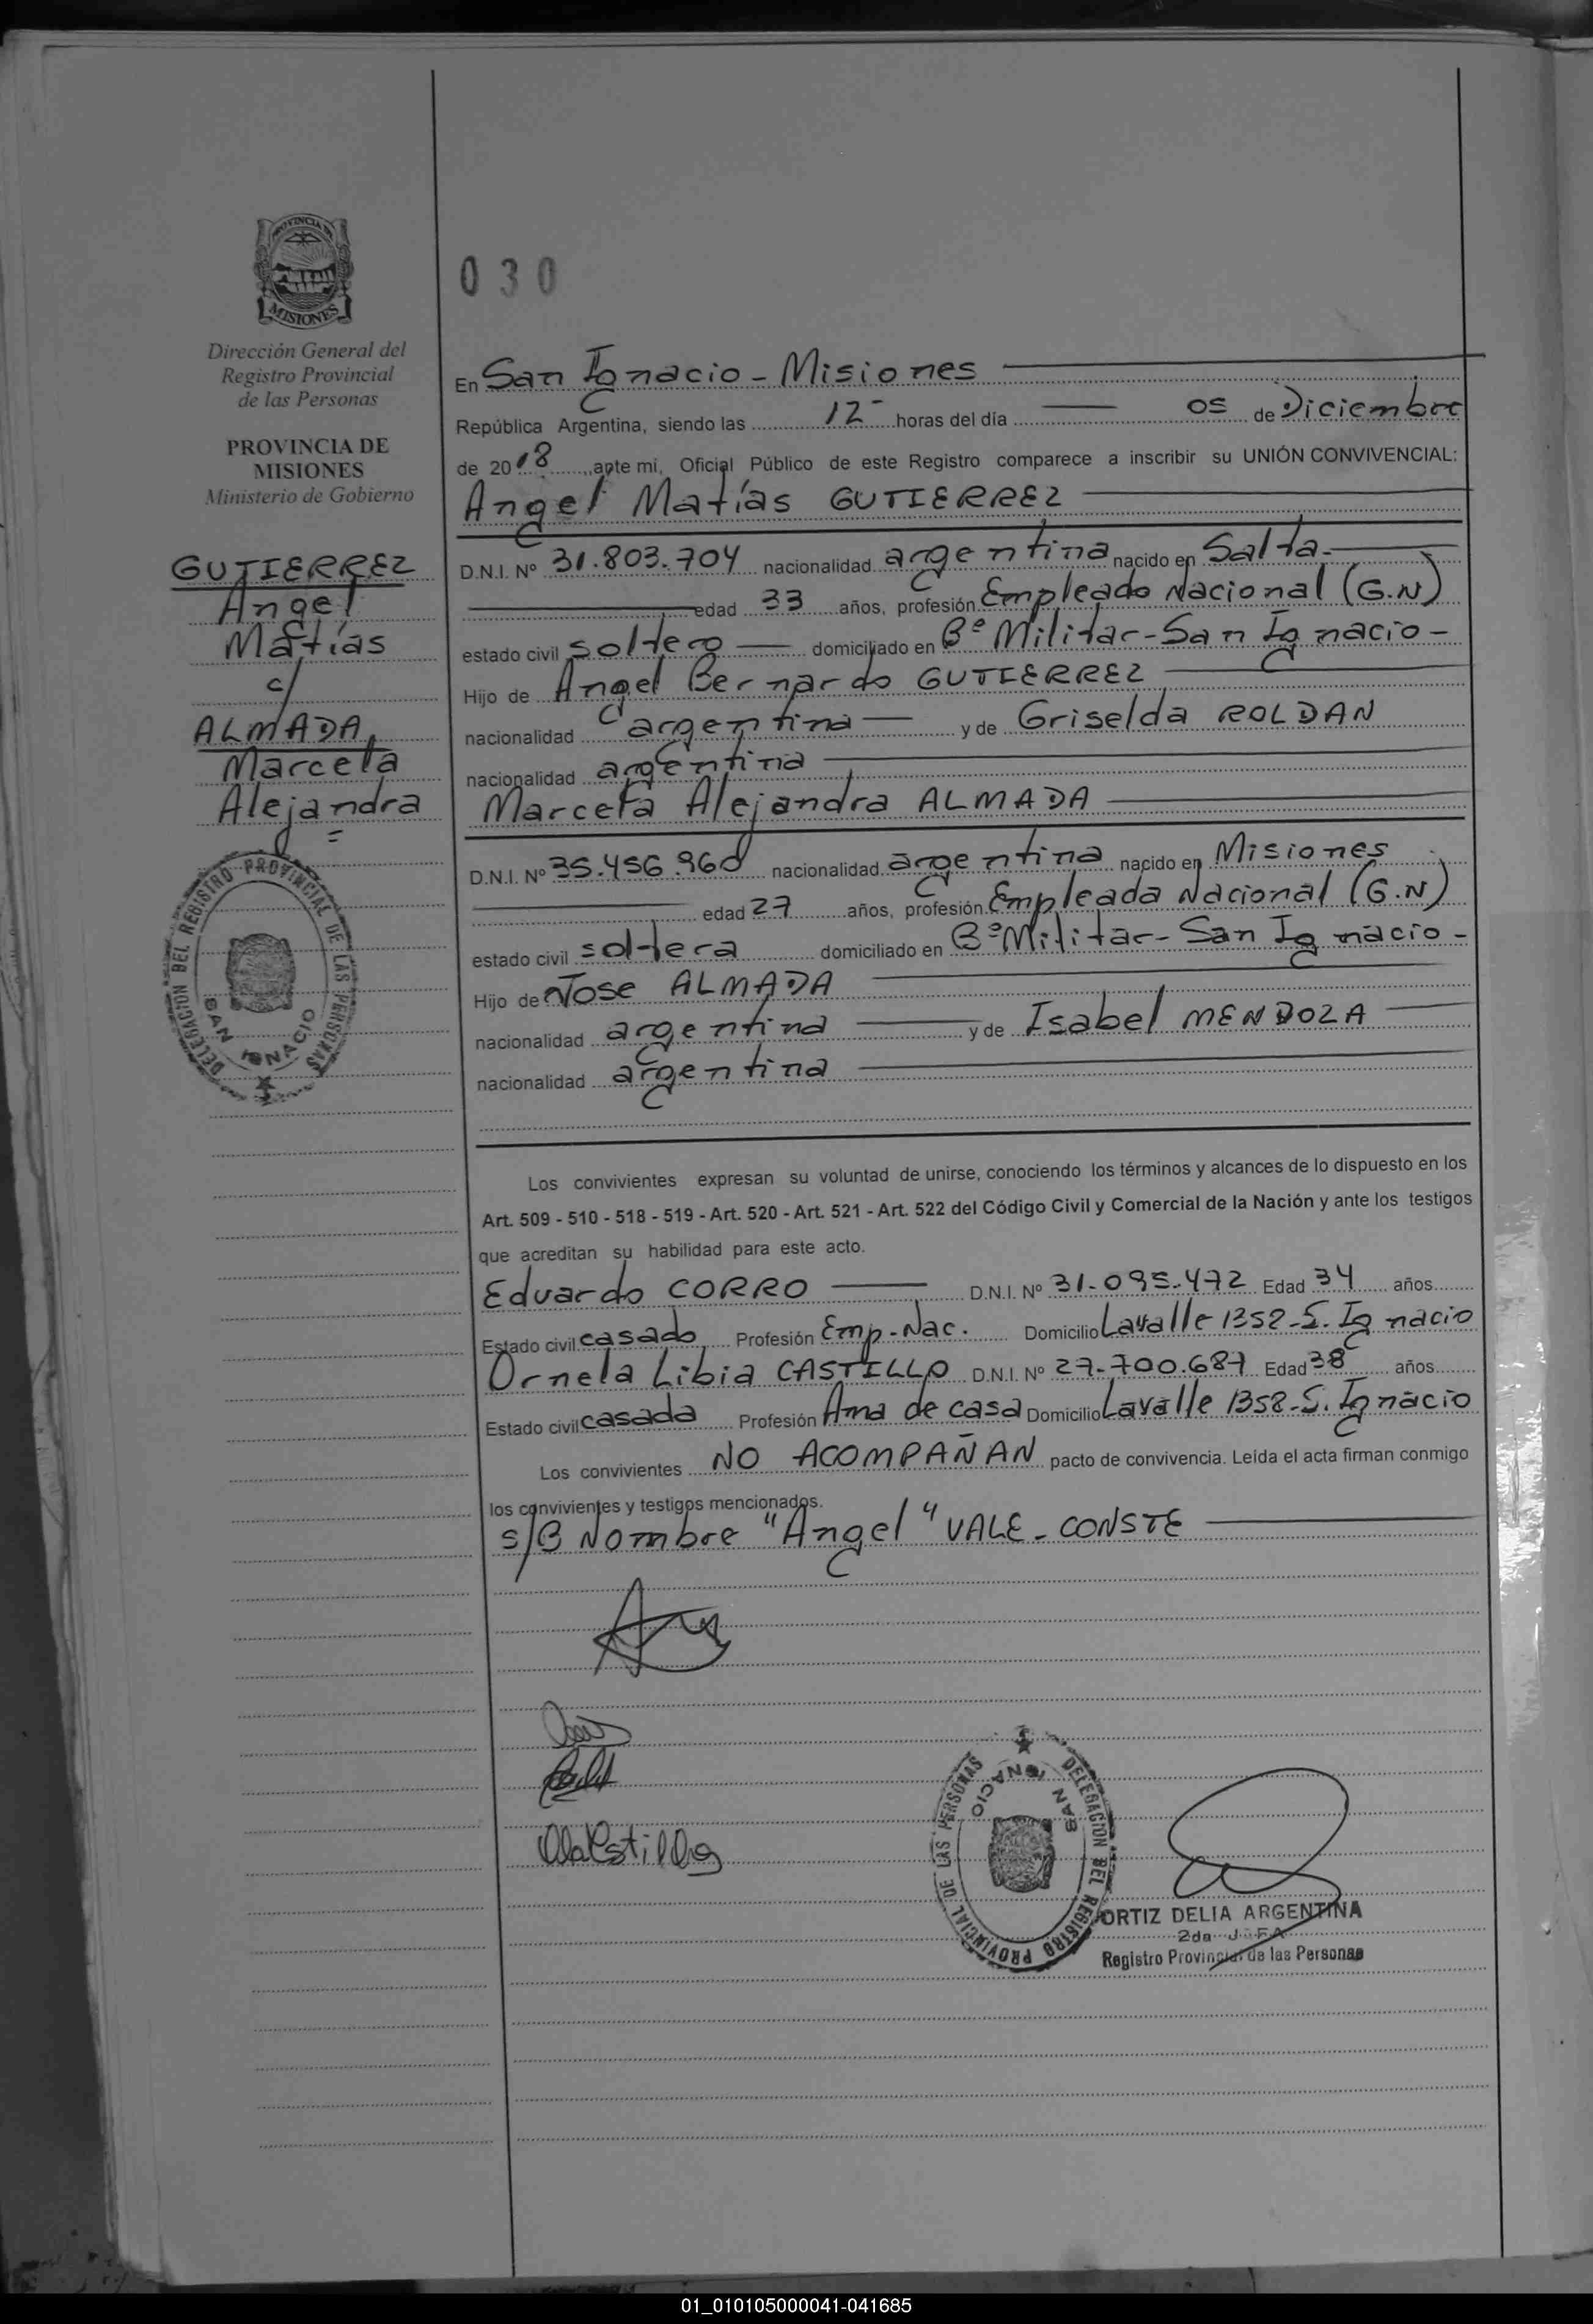 PROVINCIA DE
MISIONES
Dirección General del
Registro Provincial
de las Personas
PROVINCIA DE
MISIONES
Ministerio de Gobierno
GUTIERREZ
Angel
Matías
c/
ALMADA
Marcela
Alejandra
DELEGACION DEL REGISTRO PROVINCIAL DE LAS PERSONAS
SAN IGNACIO
030
En San Ignacio - Misiones
República Argentina, siendo las 12 horas del día 05 de Diciembre
de 2018 ante mi, Oficial Público de este Registro comparece a inscribir su UNIÓN CONVIVENCIAL:
Angel Matías GUTIERREZ
D.N.I. Nº 31.803.704 nacionalidad argentina nacido en Salta.
edad 33 años, profesión Empleado Nacional (G.N)
estado civil soltero domiciliado en Bº Militar - San Ignacio -
Hijo de Angel Bernardo GUTIERREZ
nacionalidad argentina y de Griselda ROLDAN
nacionalidad argentina
Marcela Alejandra ALMADA
D.N.I. Nº 35.456.960 nacionalidad argentina nacido en Misiones
edad 27 años, profesión Empleada Nacional (G.N)
estado civil soltera domiciliado en Bº Militar - San Ignacio -
Hijo de Jose ALMADA
nacionalidad argentina y de Isabel MENDOZA
nacionalidad argentina
Los convivientes expresan su voluntad de unirse, conociendo los términos y alcances de lo dispuesto en los
Art. 509 - 510 - 518 - 519 - Art. 520 - Art. 521 - Art. 522 del Código Civil y Comercial de la Nación y ante los testigos
que acreditan su habilidad para este acto.
Eduardo CORRO D.N.I. Nº 31.095.472 Edad 34 años
Estado civil casado Profesión Emp. Nac. Domicilio Lavalle 1358 - S. Ignacio
Ornela Libia CASTILLO D.N.I. Nº 27.700.687 Edad 38 años
Estado civil casada Profesión Ama de casa Domicilio Lavalle 1358 - S. Ignacio
Los convivientes NO ACOMPAÑAN pacto de convivencia. Leída el acta firman conmigo
los convivientes y testigos mencionados.
S/B Nombre "Angel" VALE - CONSTE
DELEGACION DEL REGISTRO PROVINCIAL DE LAS PERSONAS
SAN IGNACIO
ORTIZ DELIA ARGENTINA
2da JEFA
Registro Provincial de las Personas
01_010105000041-041685